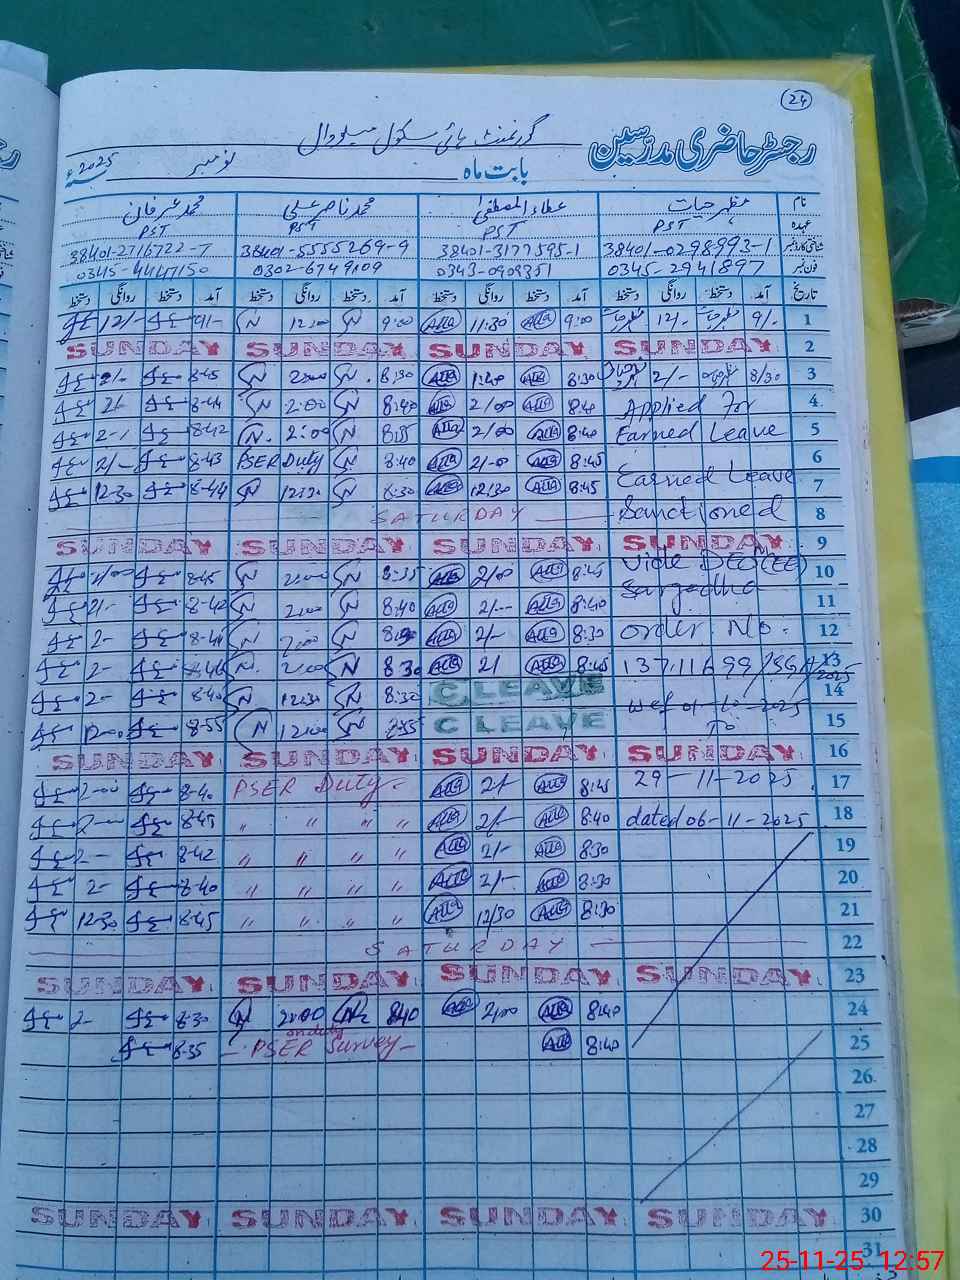 24
گورنمنٹ ہائی سکول میلووال
رجسٹر حاضری مدرسین
بابت ماہ نومبر 2025ء
نام مظہر حیات عطاء المصطفیٰ محمد ناصر علی محمد عرفان
عہدہ PST PST PST PST
شناختی کارڈ نمبر 38401-0298993-1 38401-3177595-1 38401-5555269-9 38401-2716722-7
فون نمبر 0345-2941897 0343-0909351 0302-6749109 0345-4447150
تاریخ آمد دستخط روانگی دستخط آمد دستخط روانگی دستخط آمد دستخط روانگی دستخط آمد دستخط روانگی دستخط
1 9/- 12/- 9:00 Atta 11:30 Atta 9:00 12:00 9/- 12/-
2 SUNDAY SUNDAY SUNDAY SUNDAY
3 8/30 2/- 8:30 Atta 1:40 Atta 8:30 2:00 8-45 2/-
4 Applied For 8:40 Atta 2/00 Atta 8:40 2:00 8-44 2/-
5 Earned Leave 8:40 Atta 2/00 Atta 8:35 2:00 8-42 2-/
6 8:45 Atta 2/-0 Atta 8:40 PSER Duty 8-43 2/-
7 Earned Leave 8:45 Atta 12:30 Atta 8:30 12:30 8-44 12-30
8 Sanctioned SATURDAY
9 SUNDAY SUNDAY SUNDAY SUNDAY
10 Vide DEO(EE) 8:45 Atta 2/00 Atta 8:35 2:00 8-45 2/00
11 Sargodha 8:40 Atta 2/-- Atta 8:40 2:00 8-42 2/-
12 order No. 8:30 Atta 2/- Atta 2:00 8-41 2-
13 8:45 Atta 2/ Atta 8:30 2:00 8-46 2-
14 C LEAVE 8:30 12:30 8-40 2-
15 To C LEAVE 7:55 12:00 8-55 12-00
16 SUNDAY SUNDAY SUNDAY SUNDAY
17 29-11-2025 8:45 Atta 2/- Atta PSER Duty- 8-40 2-00
18 dated 06-11-2025 8:40 Atta 2/- Atta 〃 〃 〃 〃 8-45 2-00
19 8:30 Atta 2/- Atta 〃 〃 〃 〃 8-42 2-
20 8:30 Atta 2/- Atta 〃 〃 〃 〃 8-40 2-
21 8:30 Atta 12/30 Atta 〃 〃 〃 〃 8-45 12-30
22 SATURDAY
23 SUNDAY SUNDAY SUNDAY SUNDAY
24 8:40 Atta 2/00 Atta 8:40 2:00 8-30 2-
on duty
25 8:40 Atta - PSER Survey - 8-35
26
27
28
29
30 SUNDAY SUNDAY SUNDAY SUNDAY
31
25-11-25 12:57